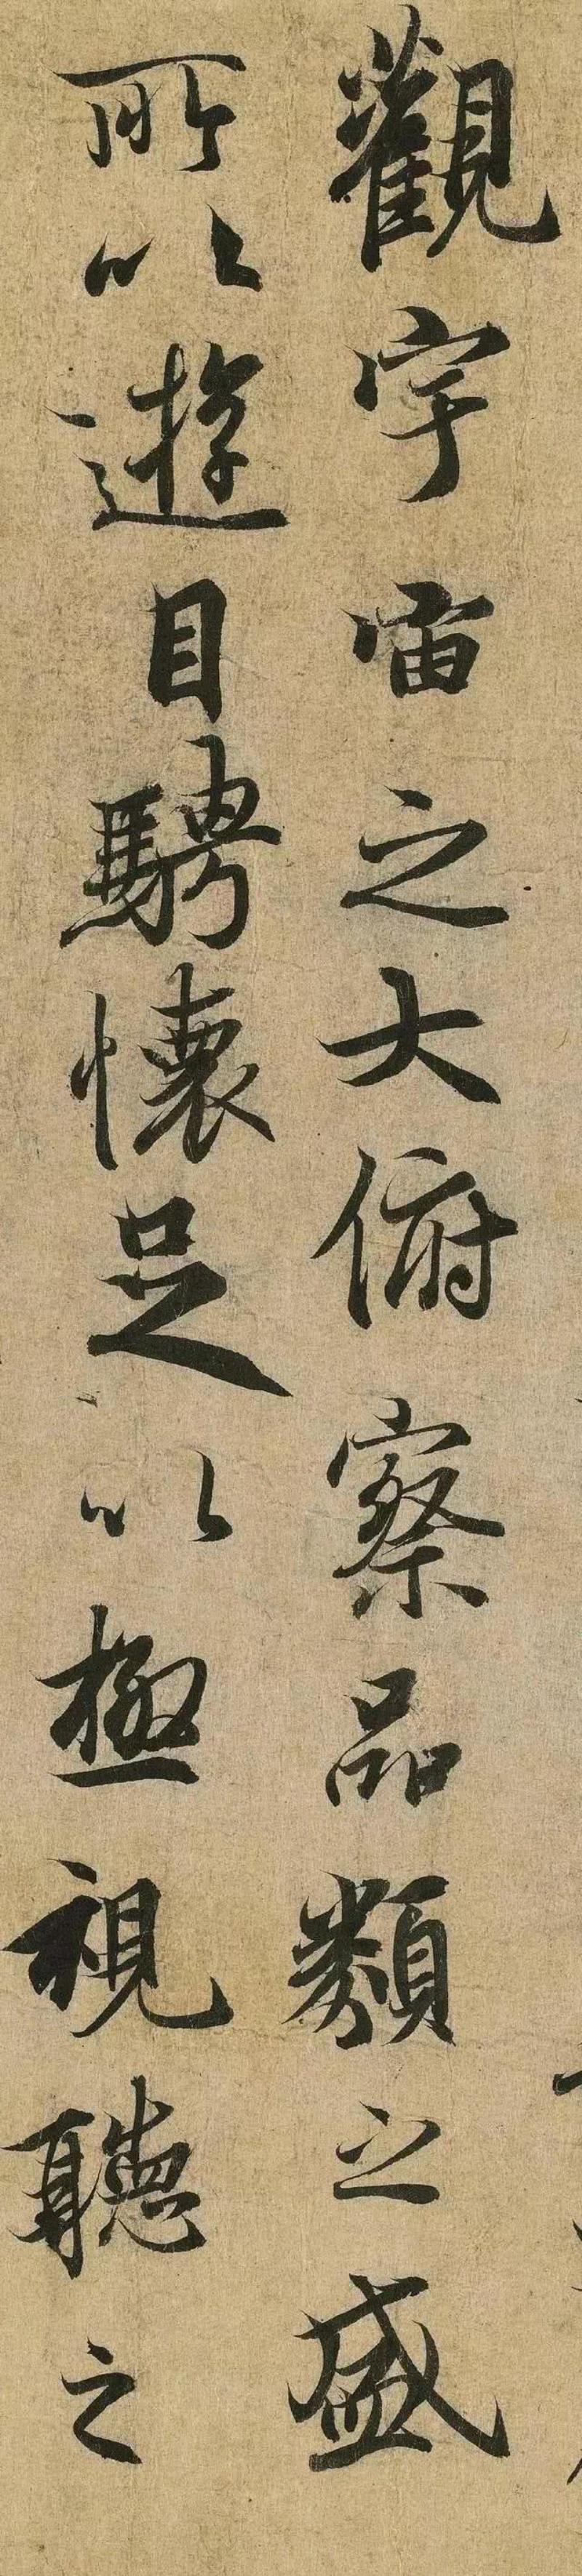 觀宇宙之大俯察品類之盛
所以遊目騁懷足以極視聽之